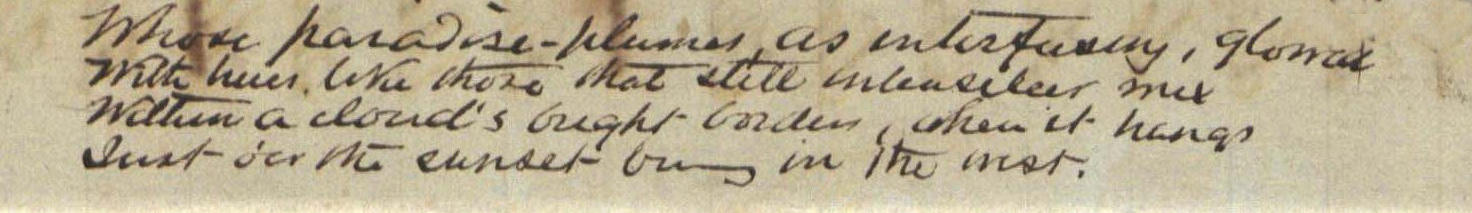 Whose paradise-plumes, as interfusing, glowed
With hues, like those that still intenselier mix
Within a cloud's bright borders, when it hangs
Just o'er the sunset in the west.